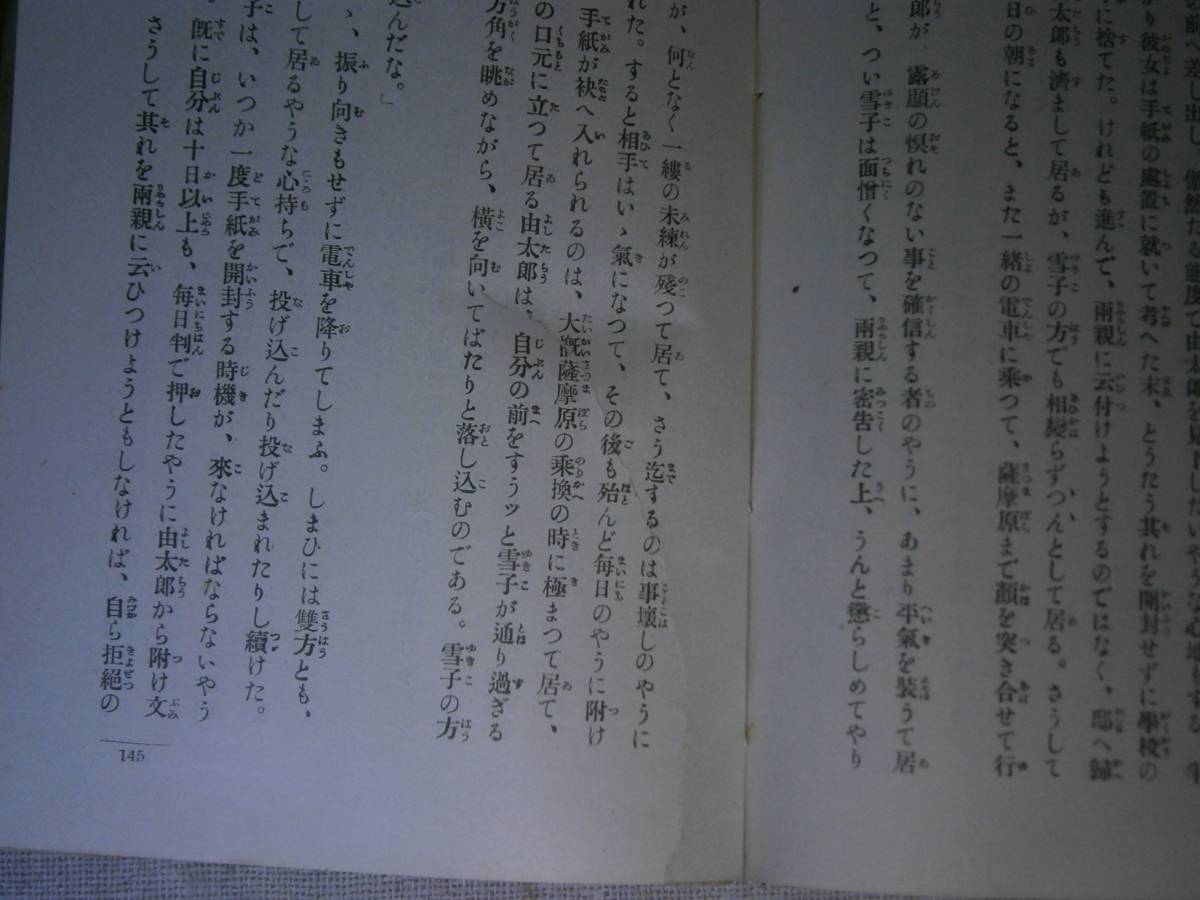 差し出し、
がり彼女は手紙の處置に就いて考へた末、とうたう其れを開封せずに學校の
に捨てた。けれども進んで、兩親に云付けようとするのではなく、邸へ歸
太郎も濟まして居るが、雪子の方でも相變らずつんとして居る。さうして
日の朝になると、また一緒の電車に乘つて、薩摩原まで顏を突き合せて行
と、つい雪子は面憎くなつて、兩親に密告した上、うんと懲らしめてやり
郎が、露顯の惧れのない事を確信する者のやうに、あまり平氣を裝うて居
が、何となく一縷の未練が殘つて居て、さう迄するのは事壞しのやうに
れた。すると相手はいゝ氣になつて、その後も殆んど毎日のやうに附け
手紙が袂へ入れられるのは、大槪薩摩原の乘換の時に極まつて居て、
の口元に立つて居る由太郎は、自分の前をすうッと雪子が通り過ぎる
方角を眺めながら、橫を向いてばたりと落し込むのである。雪子の方
込んだな。」
ゝ、振り向きもせずに電車を降りてしまふ。しまひには雙方とも、
して居るやうな心持ちで、投げ込んだり投げ込まれたりし續けた。
子は、いつか一度手紙を開封する時機が、來なければならないやう
。既に自分は十日以上も、毎日判で押したやうに由太郎から附け文
さうして其れを兩親に云ひつけようともしなければ、自ら拒絕の
145